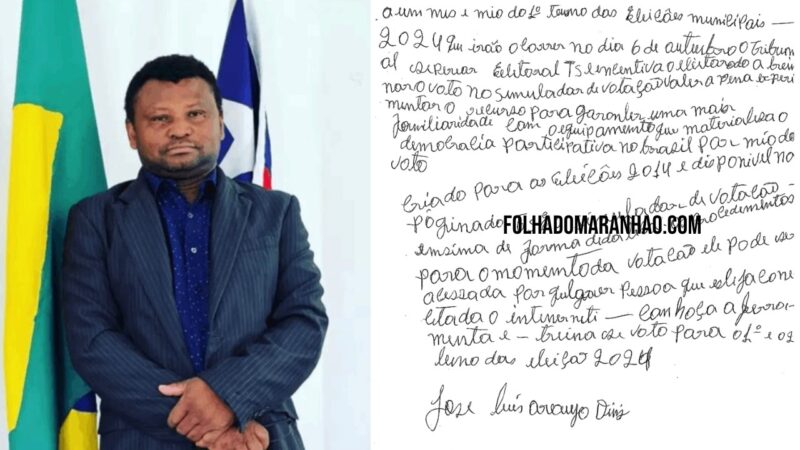 a um mis e mio do 1º turno das Eleições municipais —
2024 que irão ocorrer no dia 6 de outubro O Tribun
al superior Eleitoral TSE incentiva o eleitorado a trein
nar o voto no simulador de votação vale a pena experi
mentar o recurso para garanter uma maior
familiaridade com o equipamento que materializa o
democracia participativa no brasil por mio do
voto
Criado para as Eleições 2014 e disponivel no
paginado votação —
FOLHADOMARANHAO.COM
ensima de forma procedimentos
para o momento da votação ele pode se
acessada por qulquer pessoa que esteja cone
citada o internniti — conheça a ferra
menta e — treina se voto para o 1º e o 2º
turno das eleição 2024
Jose luis araujo Diniz